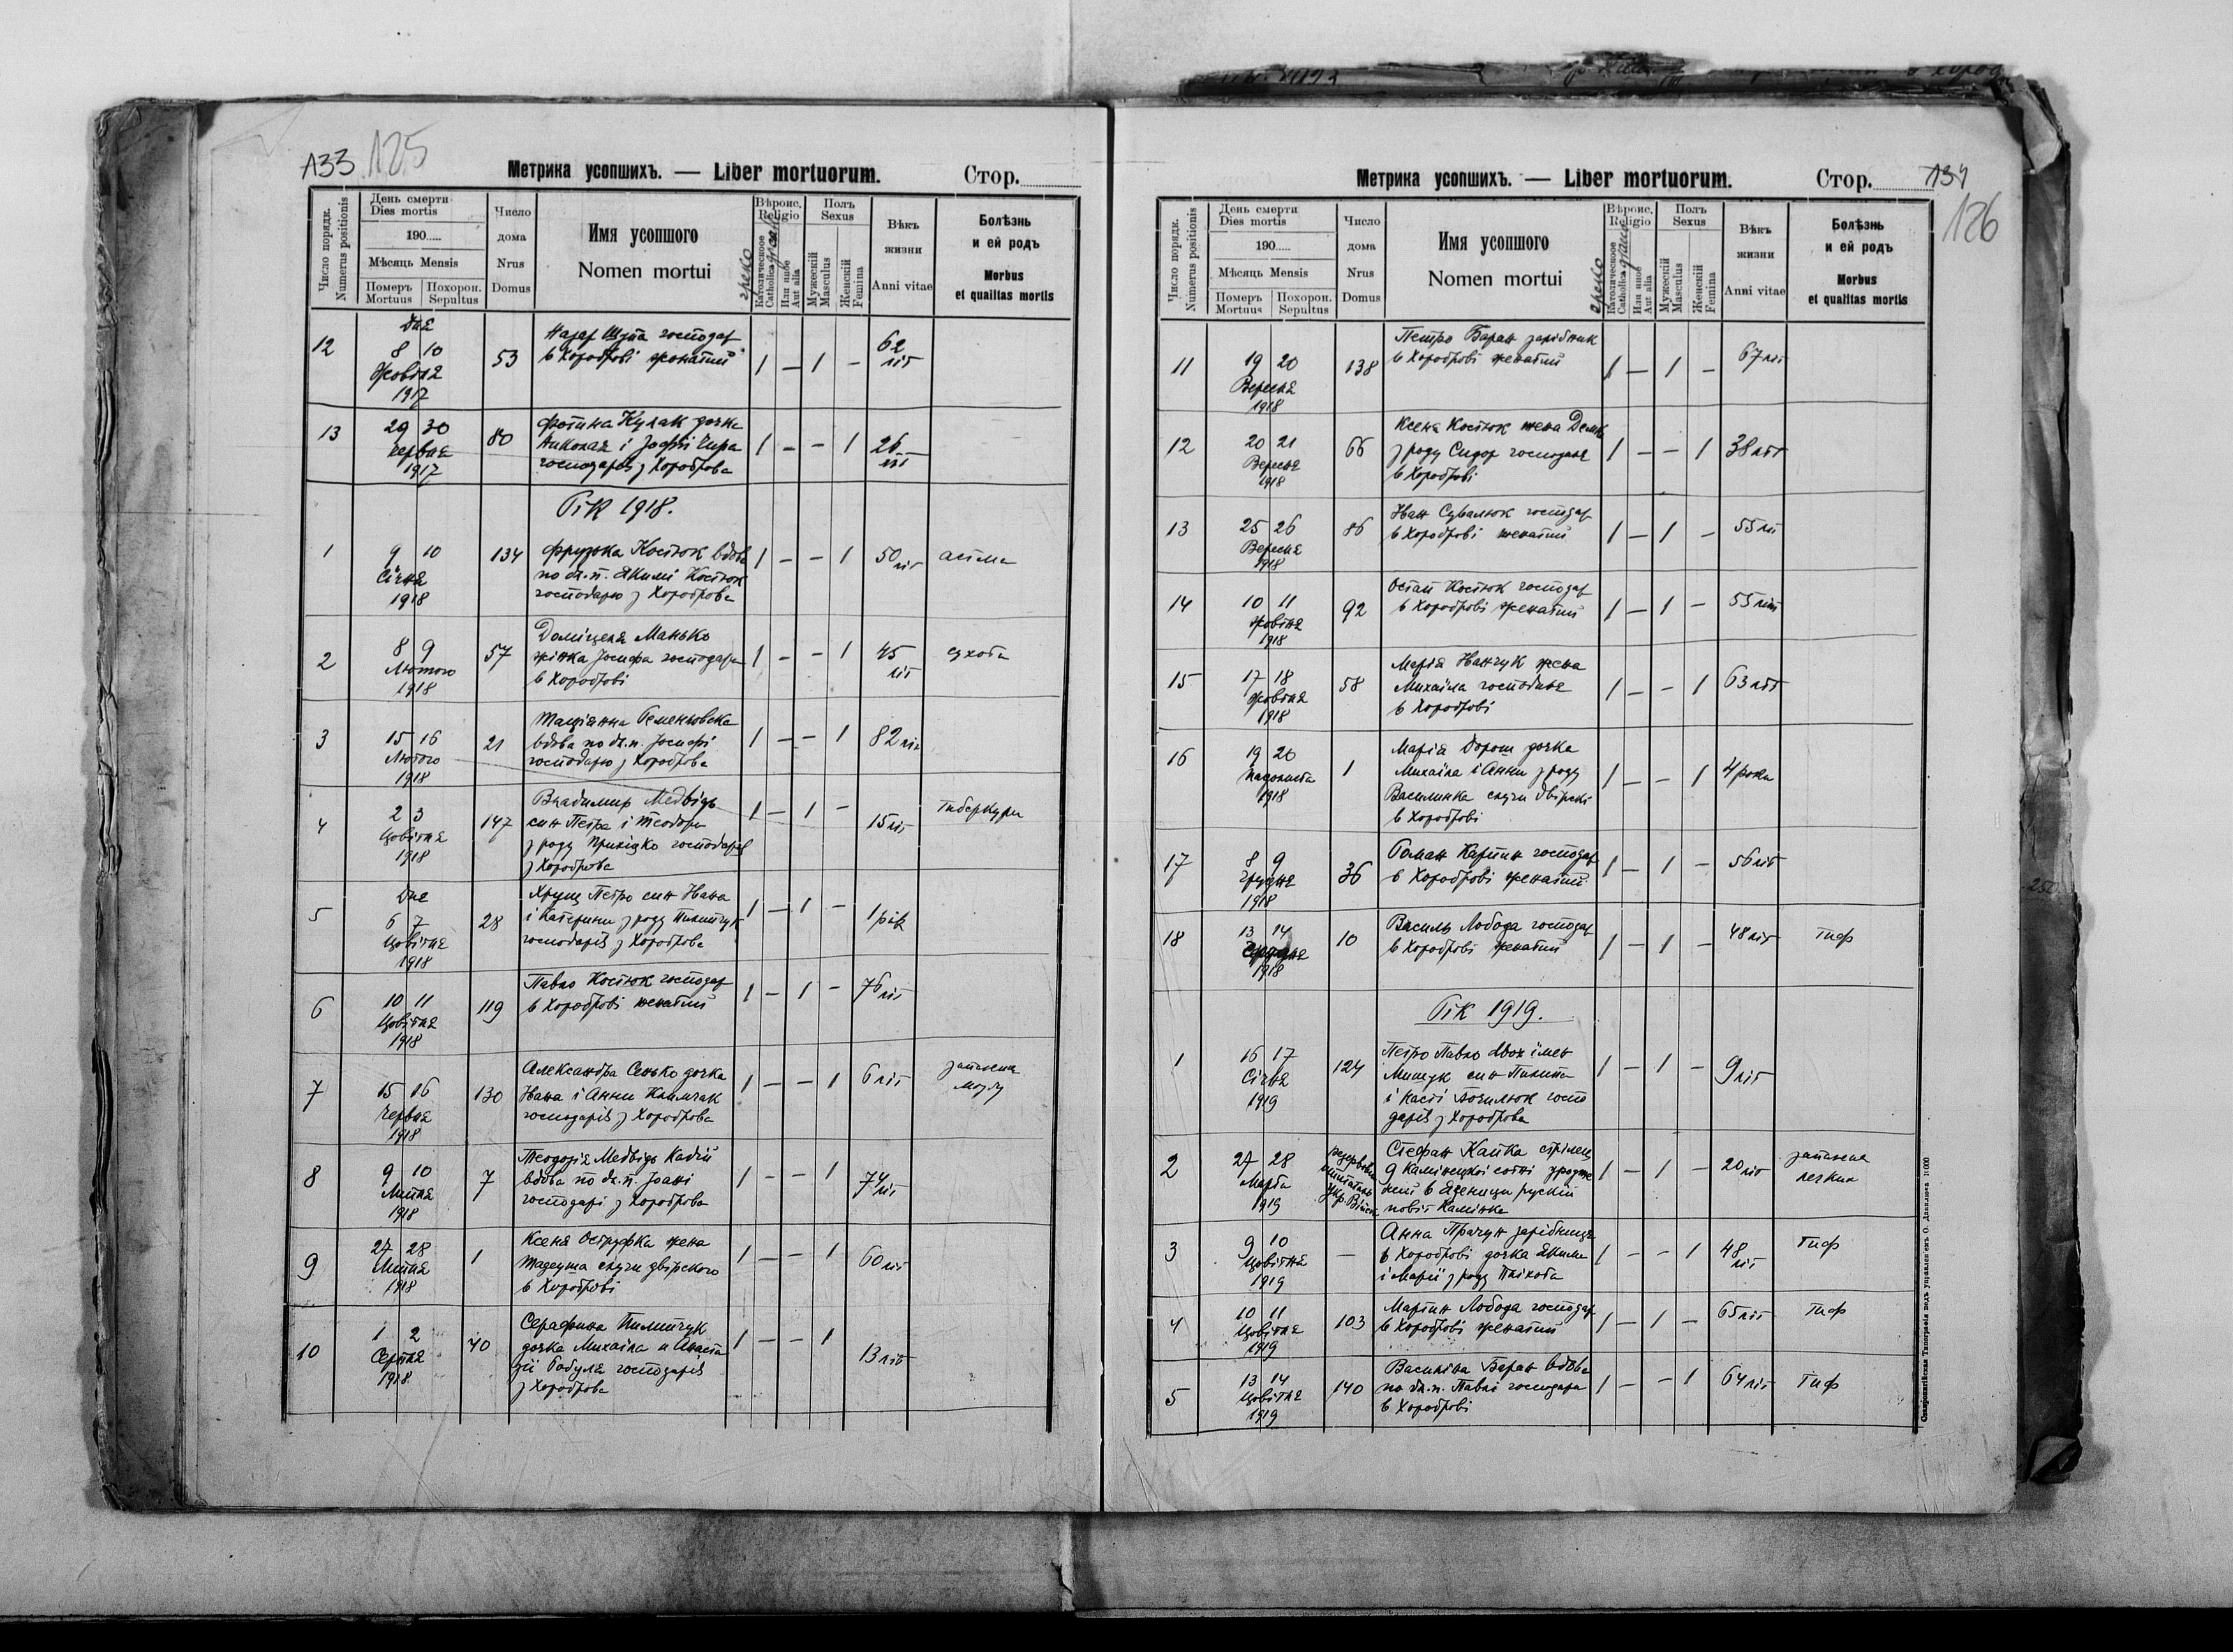 133 125
Метрика усопшихъ. — Liber mortuorum. Стор.
Число порядк. Numerus positionis
День смерти Dies mortis
190
Мѣсяць Mensis
Померъ Mortuus
Похорон. Sepultus
Число дома Nrus Domus
Имя усопшого
Nomen mortui
Вѣроис. Religio
греко
Католическое Catholica
Или иное Aut alia
Полъ Sexus
Мужескій Masculus
Женскій Femina
Вѣкъ жизни Anni vitae
Болѣзнь и ей родъ
Morbus et qualitas mortis
12 Дня 8 10 Жовтня 1917 53
Назар господар
в Хороброві жонатий 1 — 1 — 62 літ
13 29 30 Червня 1917 80
Фотина Кулак дочка
Николая і Зофії
господарів з Хороброва 1 — — 1 26 літ
Рік 1918.
1 9 10 Січня 1918 134
Фрузька Костюк вдова
по бл.п. Якимі Костюк
господарю з Хороброва 1 — — 1 50 літ астма
2 8 9 Лютого 1918 57
Доміцеля Манько
жінка Йосифа господаря
в Хороброві 1 — — 1 45 літ сухота
3 15 16 Лютого 1918 21
Таціянна Семеньовска
вдова по бл.п. Йосифі
господарю з Хороброва 1 — — 1 82 літ
4 2 3 Цвітня 1918 147
Владимир Медвідь
син Петра і Теодори
з роду господарів
з Хороброва 1 — 1 — 15 літ
5 Дня 6 7 Цвітня 1918 28
Хрущ Петро син Ивана
і Катерини з роду Пилипчук
господарів з Хороброва 1 — 1 — 1 рік
6 10 11 Цвітня 1918 119
Павло Костюк господар
в Хороброві женатий 1 — 1 — 76 літ
7 15 16 Червня 1918 130
Александра Сенько дочка
Ивана і Анни Климчак
господарів з Хороброва 1 — — 1 6 літ запаленя мозгу
8 9 10 Липня 1918 7
Теодозія Медвідь Кадій
вдова по бл.п. Йоані
господарі з Хороброва 1 — — 1 74 літ
9 27 28 Липня 1918 1
Ксеня Оструфка жена
Тадеуша слуги двірского
в Хороброві 1 — — 1 60 літ
10 1 2 Серпня 1918 40
Серафина Пилипчук
дочка Михаіла и Анаста
зії Бабуля господарів
з Хороброва 1 — — 1 13 літ
134
126
Метрика усопшихъ. — Liber mortuorum. Стор.
Число порядк. Numerus positionis
День смерти Dies mortis
190
Мѣсяць Mensis
Померъ Mortuus
Похорон. Sepultus
Число дома Nrus Domus
Имя усопшого
Nomen mortui
Вѣроис. Religio
греко
Католическое Catholica
Или иное Aut alia
Полъ Sexus
Мужескій Masculus
Женскій Femina
Вѣкъ жизни Anni vitae
Болѣзнь и ей родъ
Morbus et qualitas mortis
11 19 20 Вересня 1918 138
Петро Баран зарібник
в Хороброві женатий 1 — 1 — 67 літ
12 20 21 Вересня 1918 66
Ксеня Костюк жена Демк
з роду Сидор господиня
в Хороброві 1 — — 1 38 літ
13 25 26 Вересня 1918 86
Иван Сувалюк господар
в Хороброві женатий 1 — 1 — 55 літ
14 10 11 жовтня 1918 92
Остап Костюк господар
в Хороброві женатий 1 — 1 — 55 літ
15 17 18 Жовтня 1918 58
Марія Иванчук жена
Михаіла господиня
в Хороброві 1 — — 1 63 літ
16 19 20 Падолиста 1918 1
Марія Дорош дочка
Михаіла і Анни з роду
Василинка слуги двірскі
в Хороброві 1 — — 1 4 роки
17 8 9 Грудня 1918 36
Роман Карпин господар
в Хороброві женатий 1 — 1 — 56 літ
18 13 14 Грудня 1918 10
Василь Лобода господар
в Хороброві женатий 1 — 1 — 48 літ тиф
Рік 1919.
1 16 17 Січня 1919 124
Петро Павло двох імен
Мищук син Пилипа
і Насті госпо
дарів з Хороброва 1 — 1 — 9 літ
2 27 28 Марта 1919 шпіталь Укр. Війск
Стефан Капка стрілец
9 Камінецкої сотні уродже
ний в Яденици рускій
повіт Камінка 1 — 1 — 20 літ запаленя легких
3 9 10 Цвітня 1919 —
Анна Прачун зарібниця
в Хороброві дочка Якима
і Марії з роду 1 — — 1 48 літ Тиф
4 10 11 Цвітня 1919 103
Мартин Лобода господар
в Хороброві женатий 1 — 1 — 65 літ Тиф
5 13 14 Цвітня 1919 140
Василина Баран вдова
по бл.п. Павлі господаря
в Хороброві 1 — — 1 64 літ Тиф